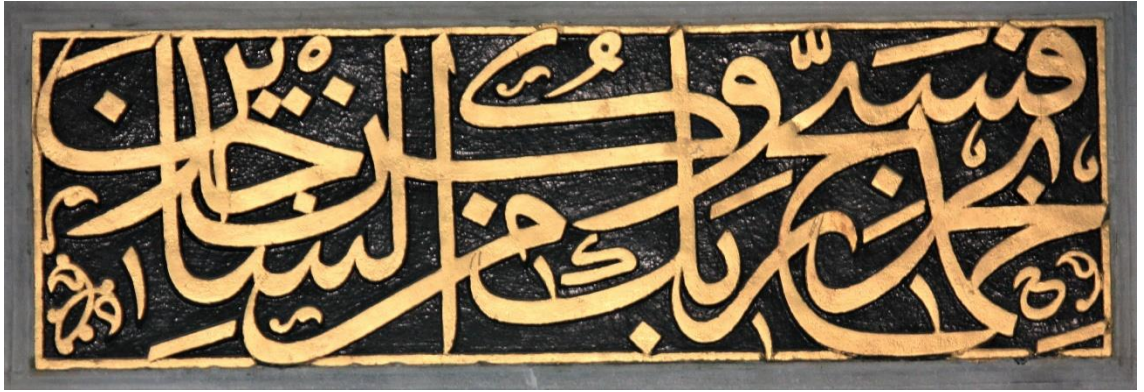 فسبح بحمد ربك وكن من الساجدين